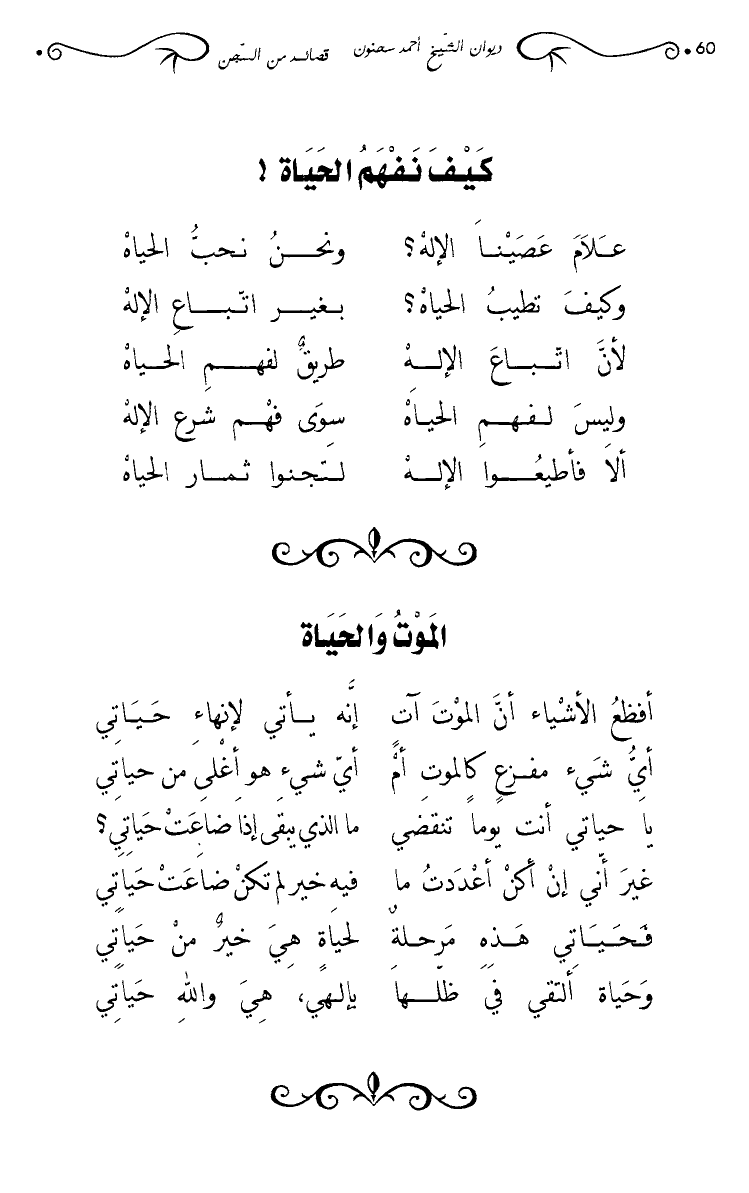 60 ديوان الشّيخ أحمد سحنون قصائد من السّجن
كَيْفَ نَفْهَمُ الحَيَاة !
عَلاَمَ عَصَيْنَا الإلهْ؟ ونحنُ نحبُّ الحياهْ
وكيفَ تطيبُ الحياهْ؟ بغير اتّباعِ الإلهْ
لأنَّ اتّباعَ الإلهْ طريقٌ لفهمِ الحياهْ
وليسَ لفهمِ الحياهْ سِوَى فهْم شرعِ الإلهْ
ألاَ فأطيعُوا الإلهْ لتجنوا ثمار الحياهْ
المَوْتُ وَالحَيَاة
أفظعُ الأشْياء أنَّ الموْتَ آتٍ إنَّه يأتي لإنهاءِ حَيَاتِي
أيُّ شَيء مفزعٍ كالموتِ أمْ أيّ شيءٍ هو أغْلى من حياتِي
يا حياتي أنت يوماً تنقضي ما الذي يبقى إذا ضاعَتْ حَياتِي؟
غيرَ أنّي إنْ أكُنْ أعْدَدتُ ما فيهِ خير لم تكنْ ضاعَتْ حَياتِي
فَحَيَاتِي هَذِهِ مَرحلةٌ لحياةٍ هِيَ خيرٌ منْ حَياتِي
وَحَياة ألتقي في ظلّها بإلهي، هِيَ واللهِ حَياتِي